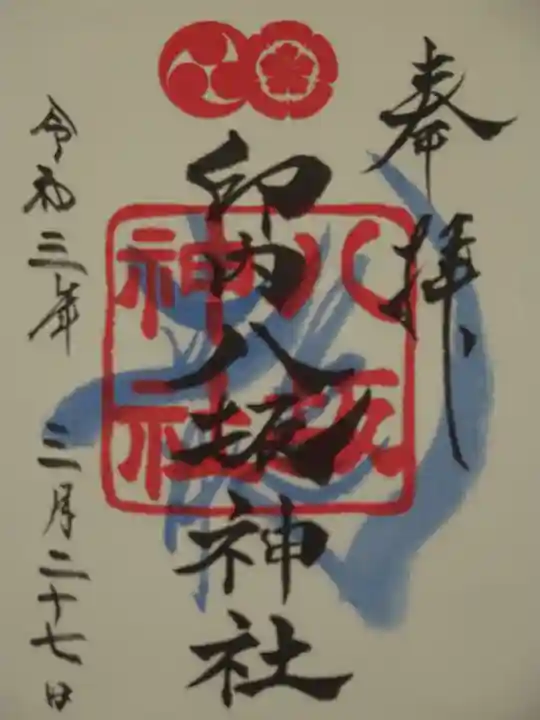 奉拝
印内八坂神社
八坂
神社
令和三年 三月二十七日